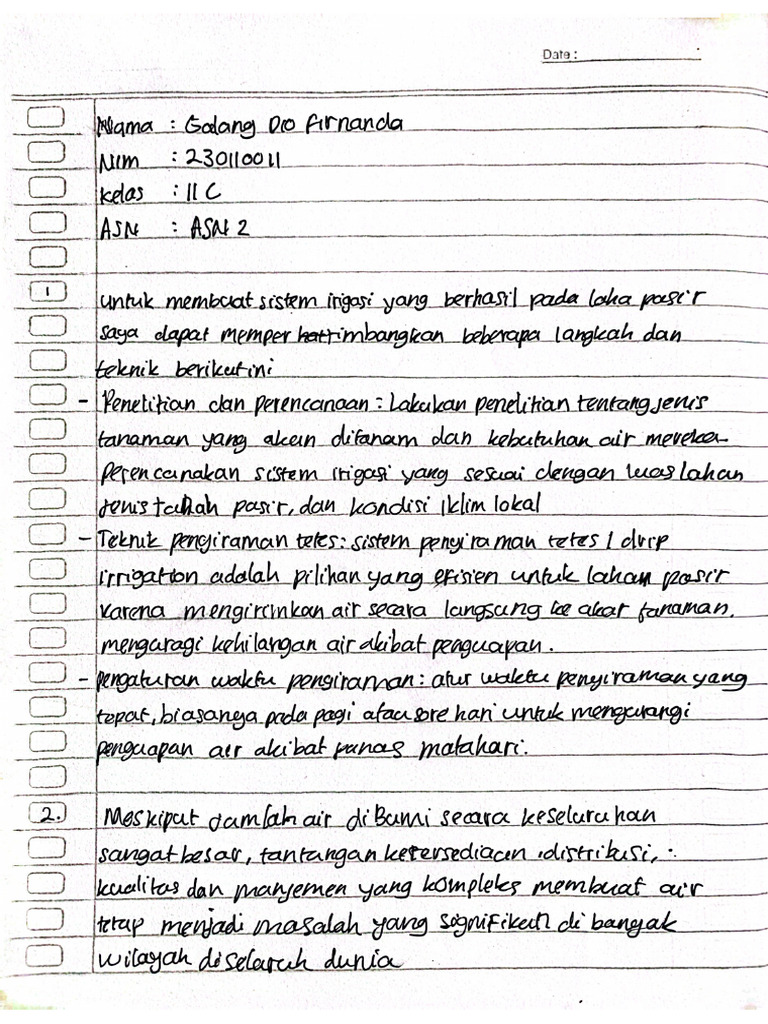 Date :
Nama : Galang Dio Firnanda
Nim : 230110011
kelas : II C
ASN : ASN 2
1 untuk membuat sistem irigasi yang berhasil pada laha pasir
saya dapat memper timbangkan beberapa langkah dan
teknik berikut ini
- Penelitian dan perencanaan : Lakukan penelitian tentang jenis
tanaman yang akan ditanam dan kebutuhan air mereka
perencanakan sistem irigasi yang sesuai dengan luas lahan
jenis tanah pasir, dan kondisi iklim lokal
- Teknik pengiraman tetes : sistem penyiraman tetes / drip
irrigation adalah pilihan yang efisien untuk lahan pasir
karena mengirimkan air secara langsung ke akar tanaman.
menguragi kehilangan air akibat penguapan.
- pengaturan waktu pengiraman : atur waktu penyiraman yang
tepat, biasanya pada pagi atau sore hari untuk mengurangi
penguapan air akibat panas matahari.
2. Meskiput Jumlah air di Bumi secara keseluruhan
sangat besar, tantangan ketersediaan .distribusi,
kualitas dan manjemen yang kompleks membuat air
tetap menjadi masalah yang signifikan di banyak
wilayah di seluruh dunia